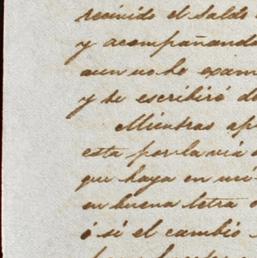 recivido el saldo
y acompañando
aun no he exam
y he escribiró d
Mientras ap
esta por la via
que haya en
en buena letra
ó si el cambio